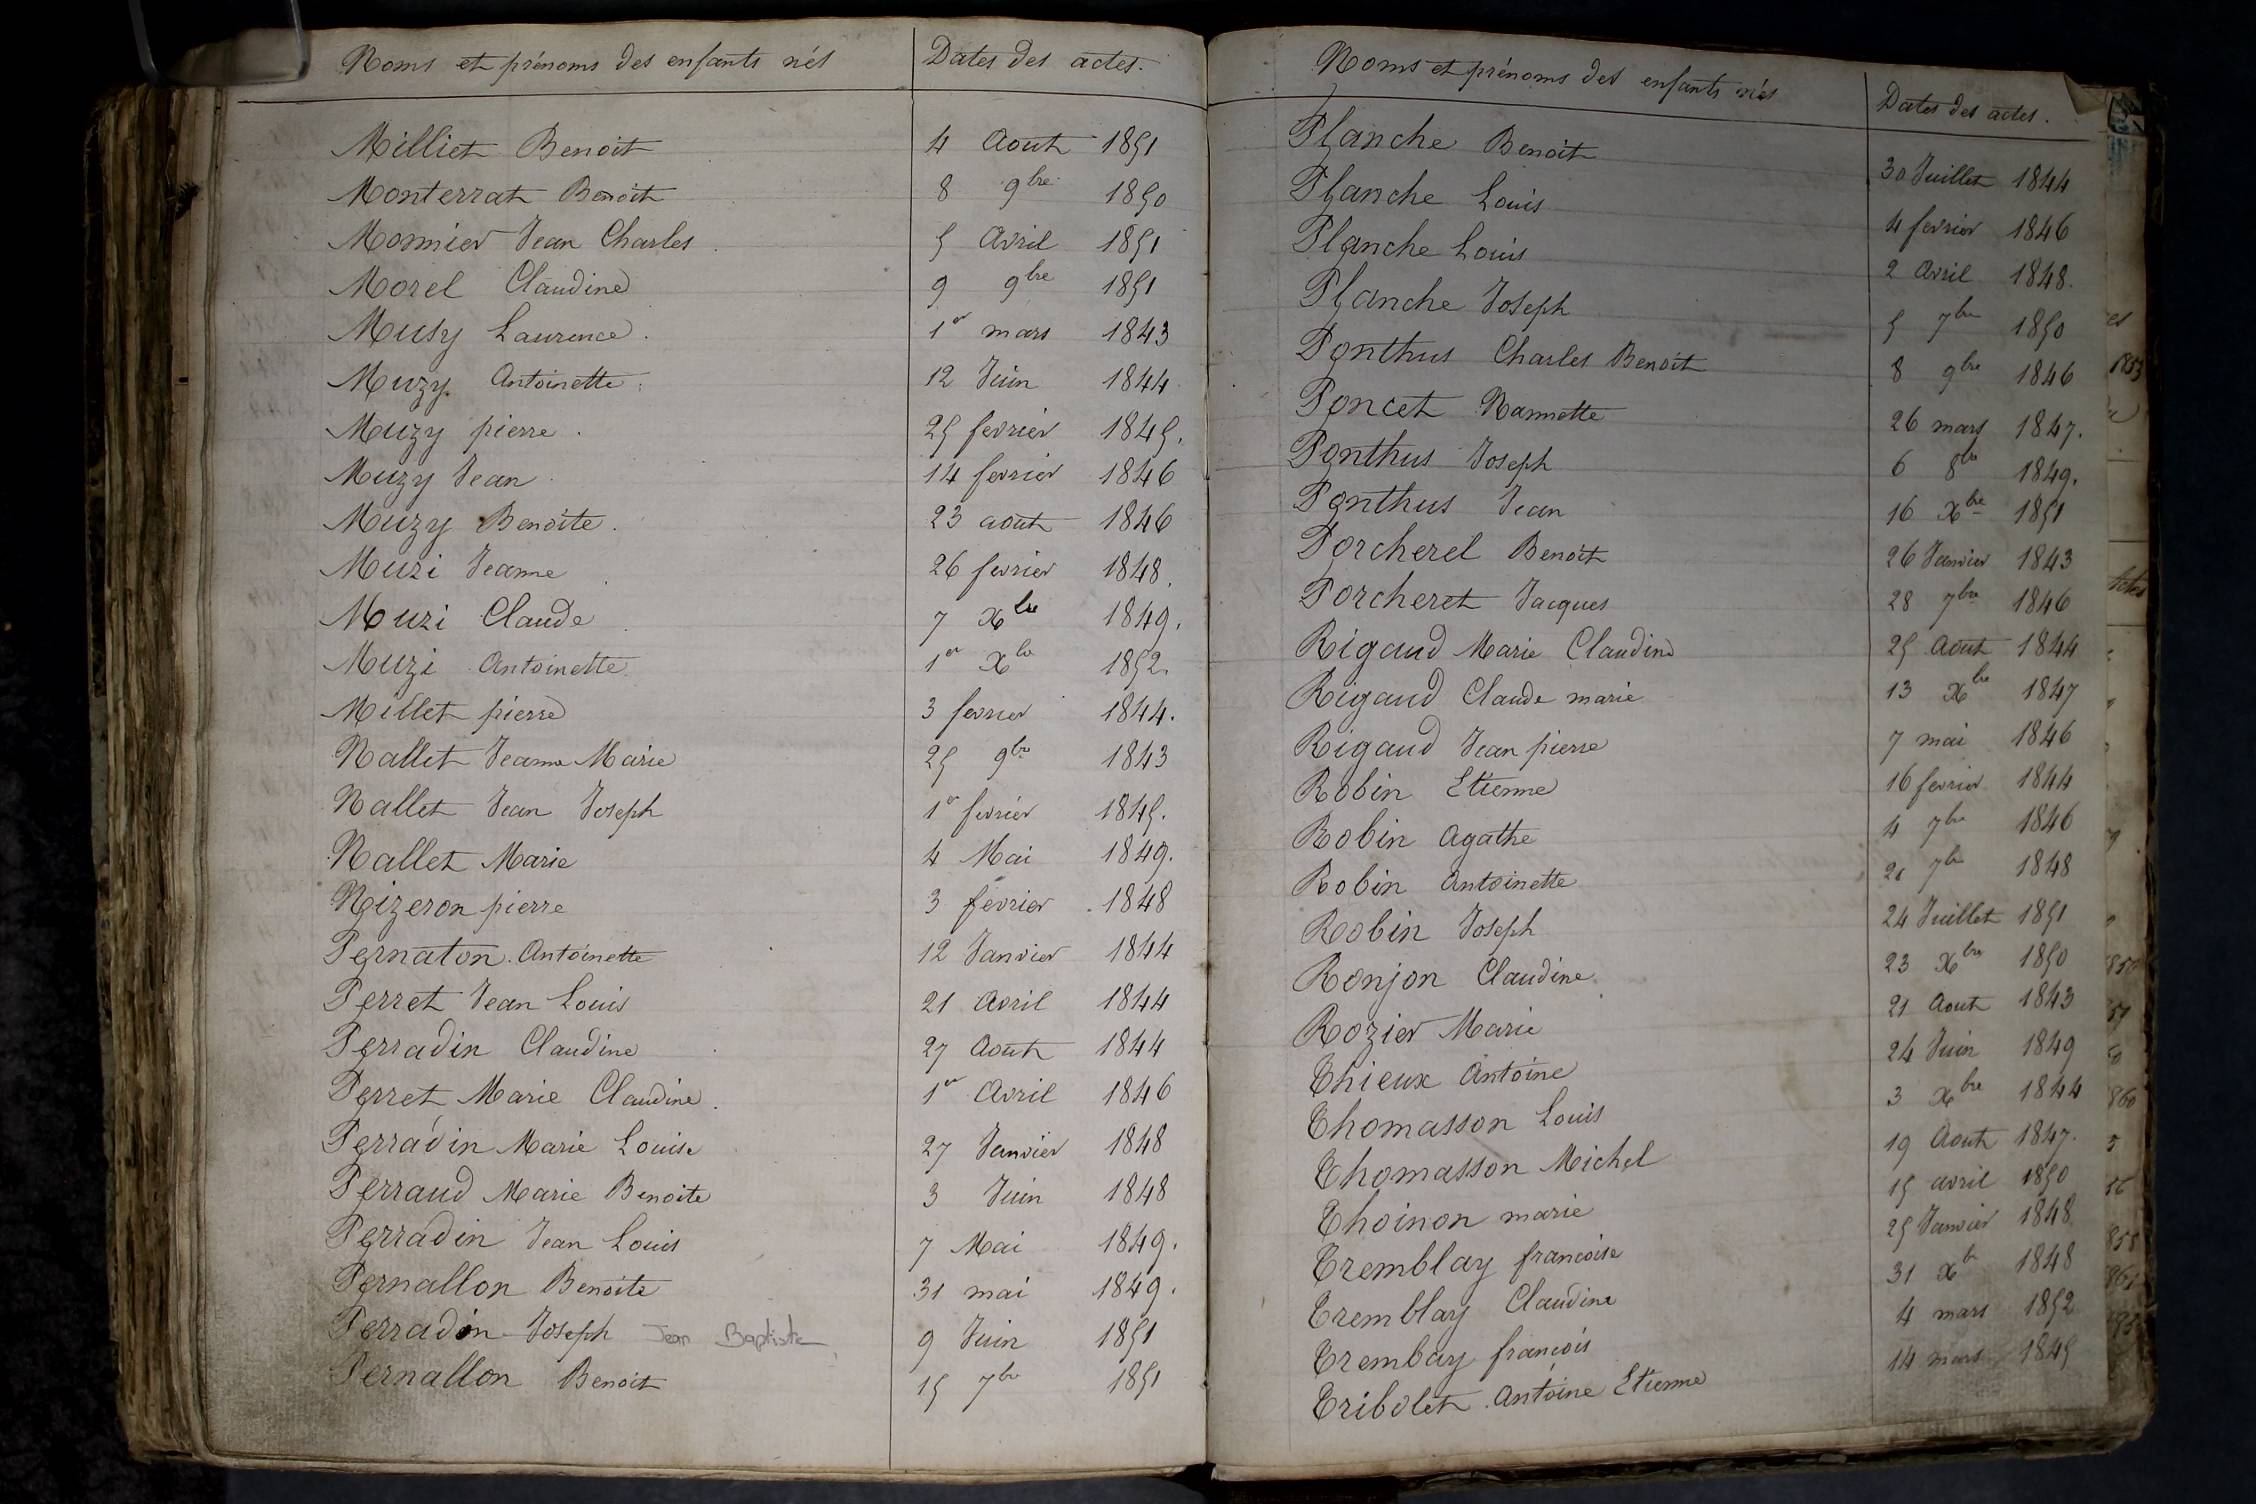 Noms et prénoms des enfants nés Dates des actes.
Milliet Benoit 4 Aout 1851
Monterrat Benoit 8 9bre 1850
Monnier Jean Charles 5 Avril 1851
Morel Claudine 9 9bre 1851
Musy Laurence. 1er mars 1843
Muzy Antoinette. 12 Juin 1844
Muzy pierre. 25 fevrier 1845.
Muzy Jean 14 fevrier 1846
Muzy Benoite. 23 aout 1846
Muzi Jeanne 26 fevrier 1848.
Muzi Claude 7 Xbre 1849.
Muzi Antoinette 1er Xbre 1852.
Millet pierre 3 fevrier 1844.
Nallet Jeanne Marie 25 9bre 1843
Nallet Jean Joseph 1er fevrier 1845.
Nallet Marie 4 Mai 1849.
Nizeron pierre 3 fevrier 1848
Pernaton Antoinette 12 Janvier 1844
Perret Jean Louis 21 Avril 1844
Perradin Claudine 27 Aout 1844
Perret Marie Claudine. 1er Avril 1846
Perradin Marie Louise 27 Janvier 1848
Perraud Marie Benoite 3 Juin 1848
Perradin Jean Louis 7 Mai 1849.
Pernallon Benoite 31 mai 1849.
Perradin Joseph Jean Baptiste 9 Juin 1851
Pernallon Benoit 15 7bre 1851
Noms et prénoms des enfants nés Dates des actes.
Planche Benoit 30 Juillet 1844
Planche Louis 4 fevrier 1846
Planche Louis 2 Avril 1848.
Planche Joseph 5 7bre 1850
Ponthus Charles Benoit 8 9bre 1846
Poncet Nannette 26 mars 1847.
Ponthus Joseph 6 8bre 1849.
Ponthus Jean 16 Xbre 1851
Porcherel Benoit 26 Janvier 1843
Porcheret Jacques 28 7bre 1846
Rigaud Marie Claudine 25 Aout 1844
Rigaud Claude marie 13 Xbre 1847
Rigaud Jean pierre 7 mai 1846
Robin Etienne 16 fevrier 1844
Robin Agathe 4 7bre 1846
Robin Antoinette 7bre 1848
Robin Joseph 24 Juillet 1851
Ronjon Claudine. 23 Xbre 1850
Rozier Marie 21 Aout 1843
Thieux Antoine 24 Juin 1849
Thomasson Louis 3 Xbre 1844
Thomasson Michel 19 Aout 1847.
Thoinon marie 15 avril 1850
Tremblay francoise 25 Janvier 1848
Tremblay Claudine 31 Xbre 1848
Trembay francois 4 mars 1852
Tribolet Antoine Etienne 14 mars 1845